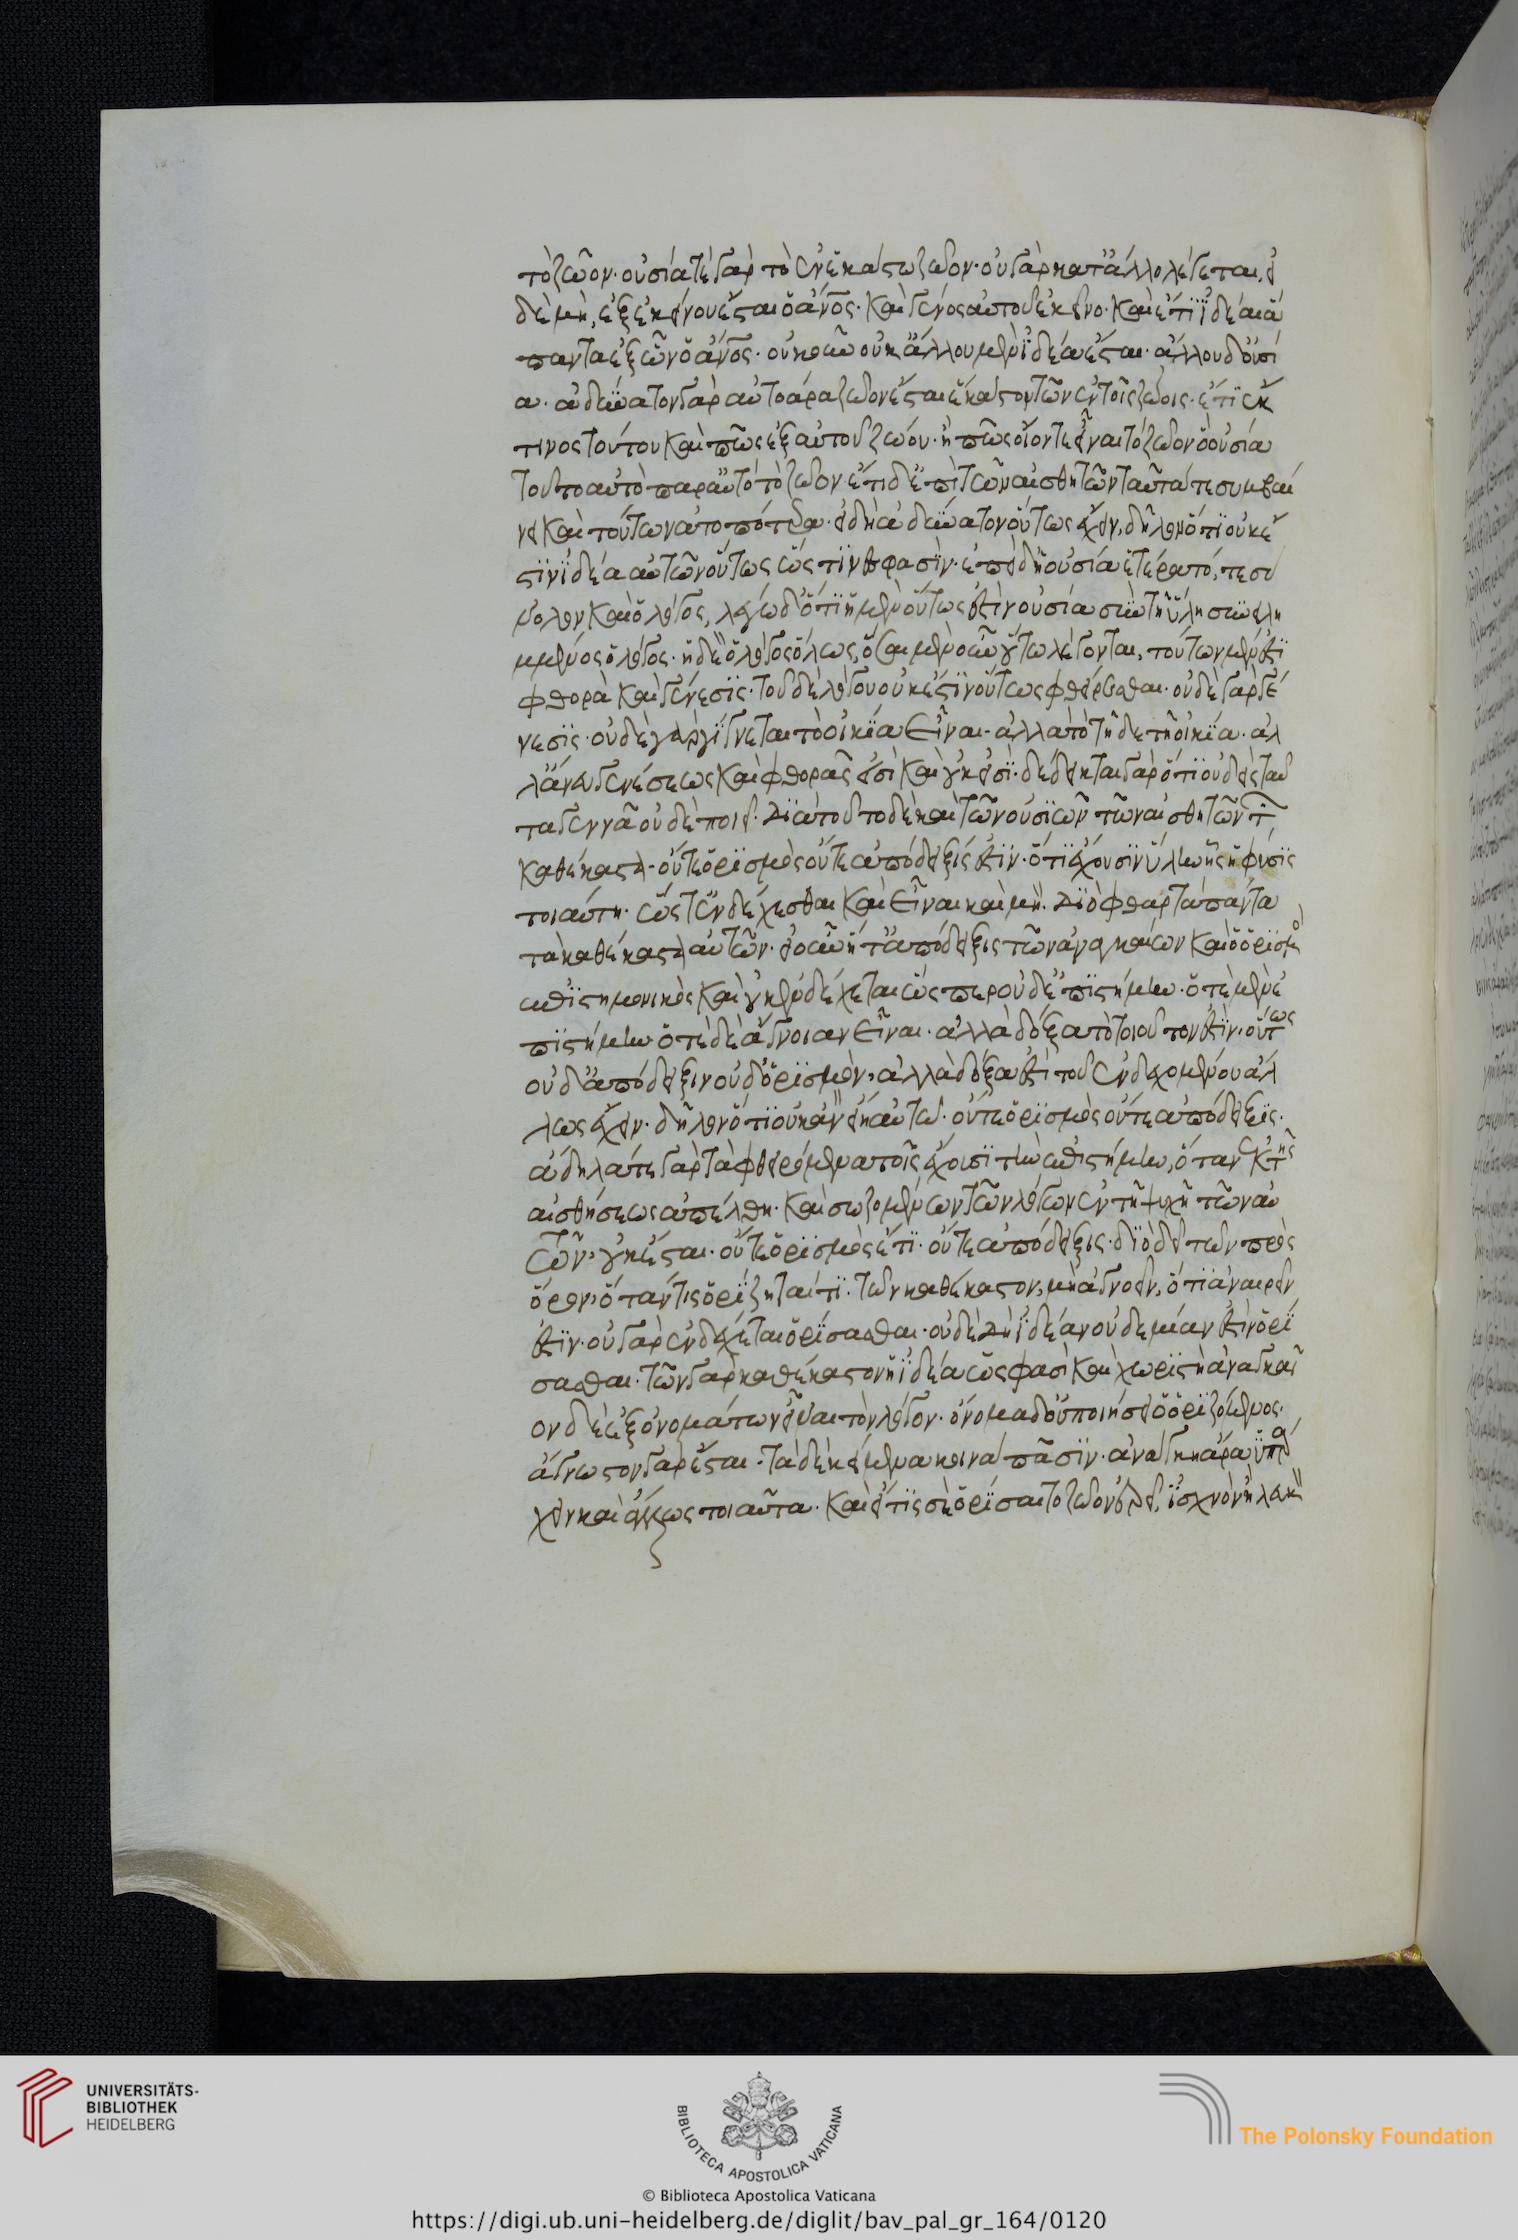 τὸ ζῶον· οὐσία τὲ γὰρ τὸ ἐν ἑκάστω ζῶον· οὐ γὰρ κατ' ἄλλο λέγεται, εἰ
δὲ μὴ, ἐξ ἐκείνου ἔσται ὁ ἄνος· καὶ γένος αὐτοῦ ἐκεῖνο· καὶ ἔτι ἰδέαι ἅ
παντα ἐξ ὧν ὁ ἄνος· οὐκοῦν οὐκ ἄλλου μὲν ἰδέα ἔσται· ἄλλου δ' οὐσί
α· ἀδύνατον γάρ αὐτο ἄρα ζῶον ἔσται ἕκαστον τῶν ἐν τοῖς ζώοις· ἔτι ἐκ
τινος τούτου καὶ πῶς ἐξ αὐτοῦ ζώου· ἢ πῶς οἷον τε εἶναι τὸ ζῶον ὃ οὐσία
τοῦτο αὐτὸ παρ' αὐτό τὸ ζῶον· ἔτι δ' ἐπὶ τῶν αἰσθητῶν ταῦτά τε συμβαί
νει καὶ τούτων ἀτοπώτερα· εἰ δὴ ἀδύνατον οὕτως ἔχειν, δῆλον ὅτι οὐκ ἔ
στιν ἰδέα αὐτῶν οὕτως ὥς τινές φασὶν· ἐπεὶ δ' ἡ οὐσία ἑτέρα τό, τε συ
νολον καὶ ὁ λόγος, λέγω δ' ὅτι ἡ μὲν οὕτως ἐστὶν οὐσία σὺν τῆ ὕλη συνειλη
μμένος ὁ λόγος· ἡ δὲ ὁ λόγος ὅλως, ὅσαι μὲν οὖν οὕτω λέγονται, τούτων μὲν ἐστὶ
φθορὰ καὶ γένεσις· τοῦ δὲ λόγου οὐκ ἔστιν οὕτως φθείρεσθαι· οὐδὲ γὰρ γέ
νεσις· οὐδὲ γὰρ γίγνεται τὸ οἰκία εἶναι· ἀλλὰ τὸ τῆδε τῆ οἰκία· ἀλ
λ' ἄνευ γενέσεως καὶ φθορᾶς εἰσὶ καὶ οὐκ εἰσὶ· δέδεικται γὰρ ὅτι οὐδεὶς ταῦ
τα γεννᾶ οὐδὲ ποιεῖ· Διὰ τοῦτο δὲ καὶ τῶν οὐσιῶν τῶν αἰσθητῶν τ
καθέκαστα· οὔτε ὁρισμὸς οὔτε ἀπόδειξίς ἐστὶν· ὅτι ἔχουσιν ὕλην ἧς ἡ φύσις
τοιαύτη· ὥστ' ἐνδέχεσθαι καὶ εἶναι καὶ μὴ. Διὸ φθαρτὰ πάντα
τὰ καθέκαστα αὐτῶν· εἰ οὖν ἥ τ' ἀπόδειξις τῶν ἀναγκαίων καὶ ὁ ὁρισμὸς
ἐπιστημονικὸς καὶ οὐκ ἐνδέχεται ὥσπερ οὐδ' ἐπιστήμην· ὁτὲ μὲν ἐ
πιστήμην· ὁτὲ δὲ ἄγνοιαν εἶναι· ἀλλὰ δόξα τὸ τοιοῦτον ἐστὶν· οὕτως
οὐδ' ἀπόδειξιν οὐδ' ὁρισμὸν, ἀλλὰ δόξα ἐστὶ τοῦ ἐνδεχομένου ἄλ
λως ἔχειν· δῆλον ὅτι οὐκ ἂν εἴη αὐτῶν· οὔτε ὁρισμὸς οὔτε ἀπόδειξις·
ἄδηλά τε γὰρ τὰ φθειρόμενα τοῖς ἔχουσι τὴν ἐπιστήμην, ὅταν ἐκ τῆς
αἰσθήσεως ἀπέλθη· καὶ σωζομένων τῶν λόγων ἐν τῆ ψυχῆ τῶν αὐ
τῶν, οὐκ ἔσται· οὔτε ὁρισμὸς ἔτι· οὔτε ἀπόδειξις· διὸ δεῖ τῶν πρὸς
ὅρον, ὅταν τις ὁρίζηταί τι· τῶν καθέκαστον, μὴ ἀγνοεῖν, ὅτι ἀναιρεῖν
ἐστὶν· οὐ γὰρ ἐνδέχεται ὁρίσασθαι· οὐδὲ Δὴ ἰδέαν οὐδεμίαν ἐστὶν ὁρί
σασθαι· τῶν γὰρ καθέκαστον ἡ ἰδέα ὥς φασὶ καὶ χωριστὴ ἀναγκαῖ
ον δὲ ἐξ ὀνομάτων εἶναι τὸν λόγον· ὄνομα δ' οὐ ποιήσει ὁ ὁριζόμενος·
ἄγνωστον γὰρ ἔσται· τὰ δὲ κείμενα κοινὰ πᾶσιν· ἀνάγκη ἄρα ὑπάρ
χειν καὶ ἄλλως τοιαῦτα· καὶ εἴ τις σὲ ὁρίσαιτο ζῶον ἐρεῖ, ἰσχνὸν ἢ λευκὸν
UNIVERSITÄTS-
BIBLIOTHEK
HEIDELBERG
BIBLIOTECA APOSTOLICA VATICANA
The Polonsky Foundation
© Biblioteca Apostolica Vaticana
https://digi.ub.uni-heidelberg.de/diglit/bav_pal_gr_164/0120